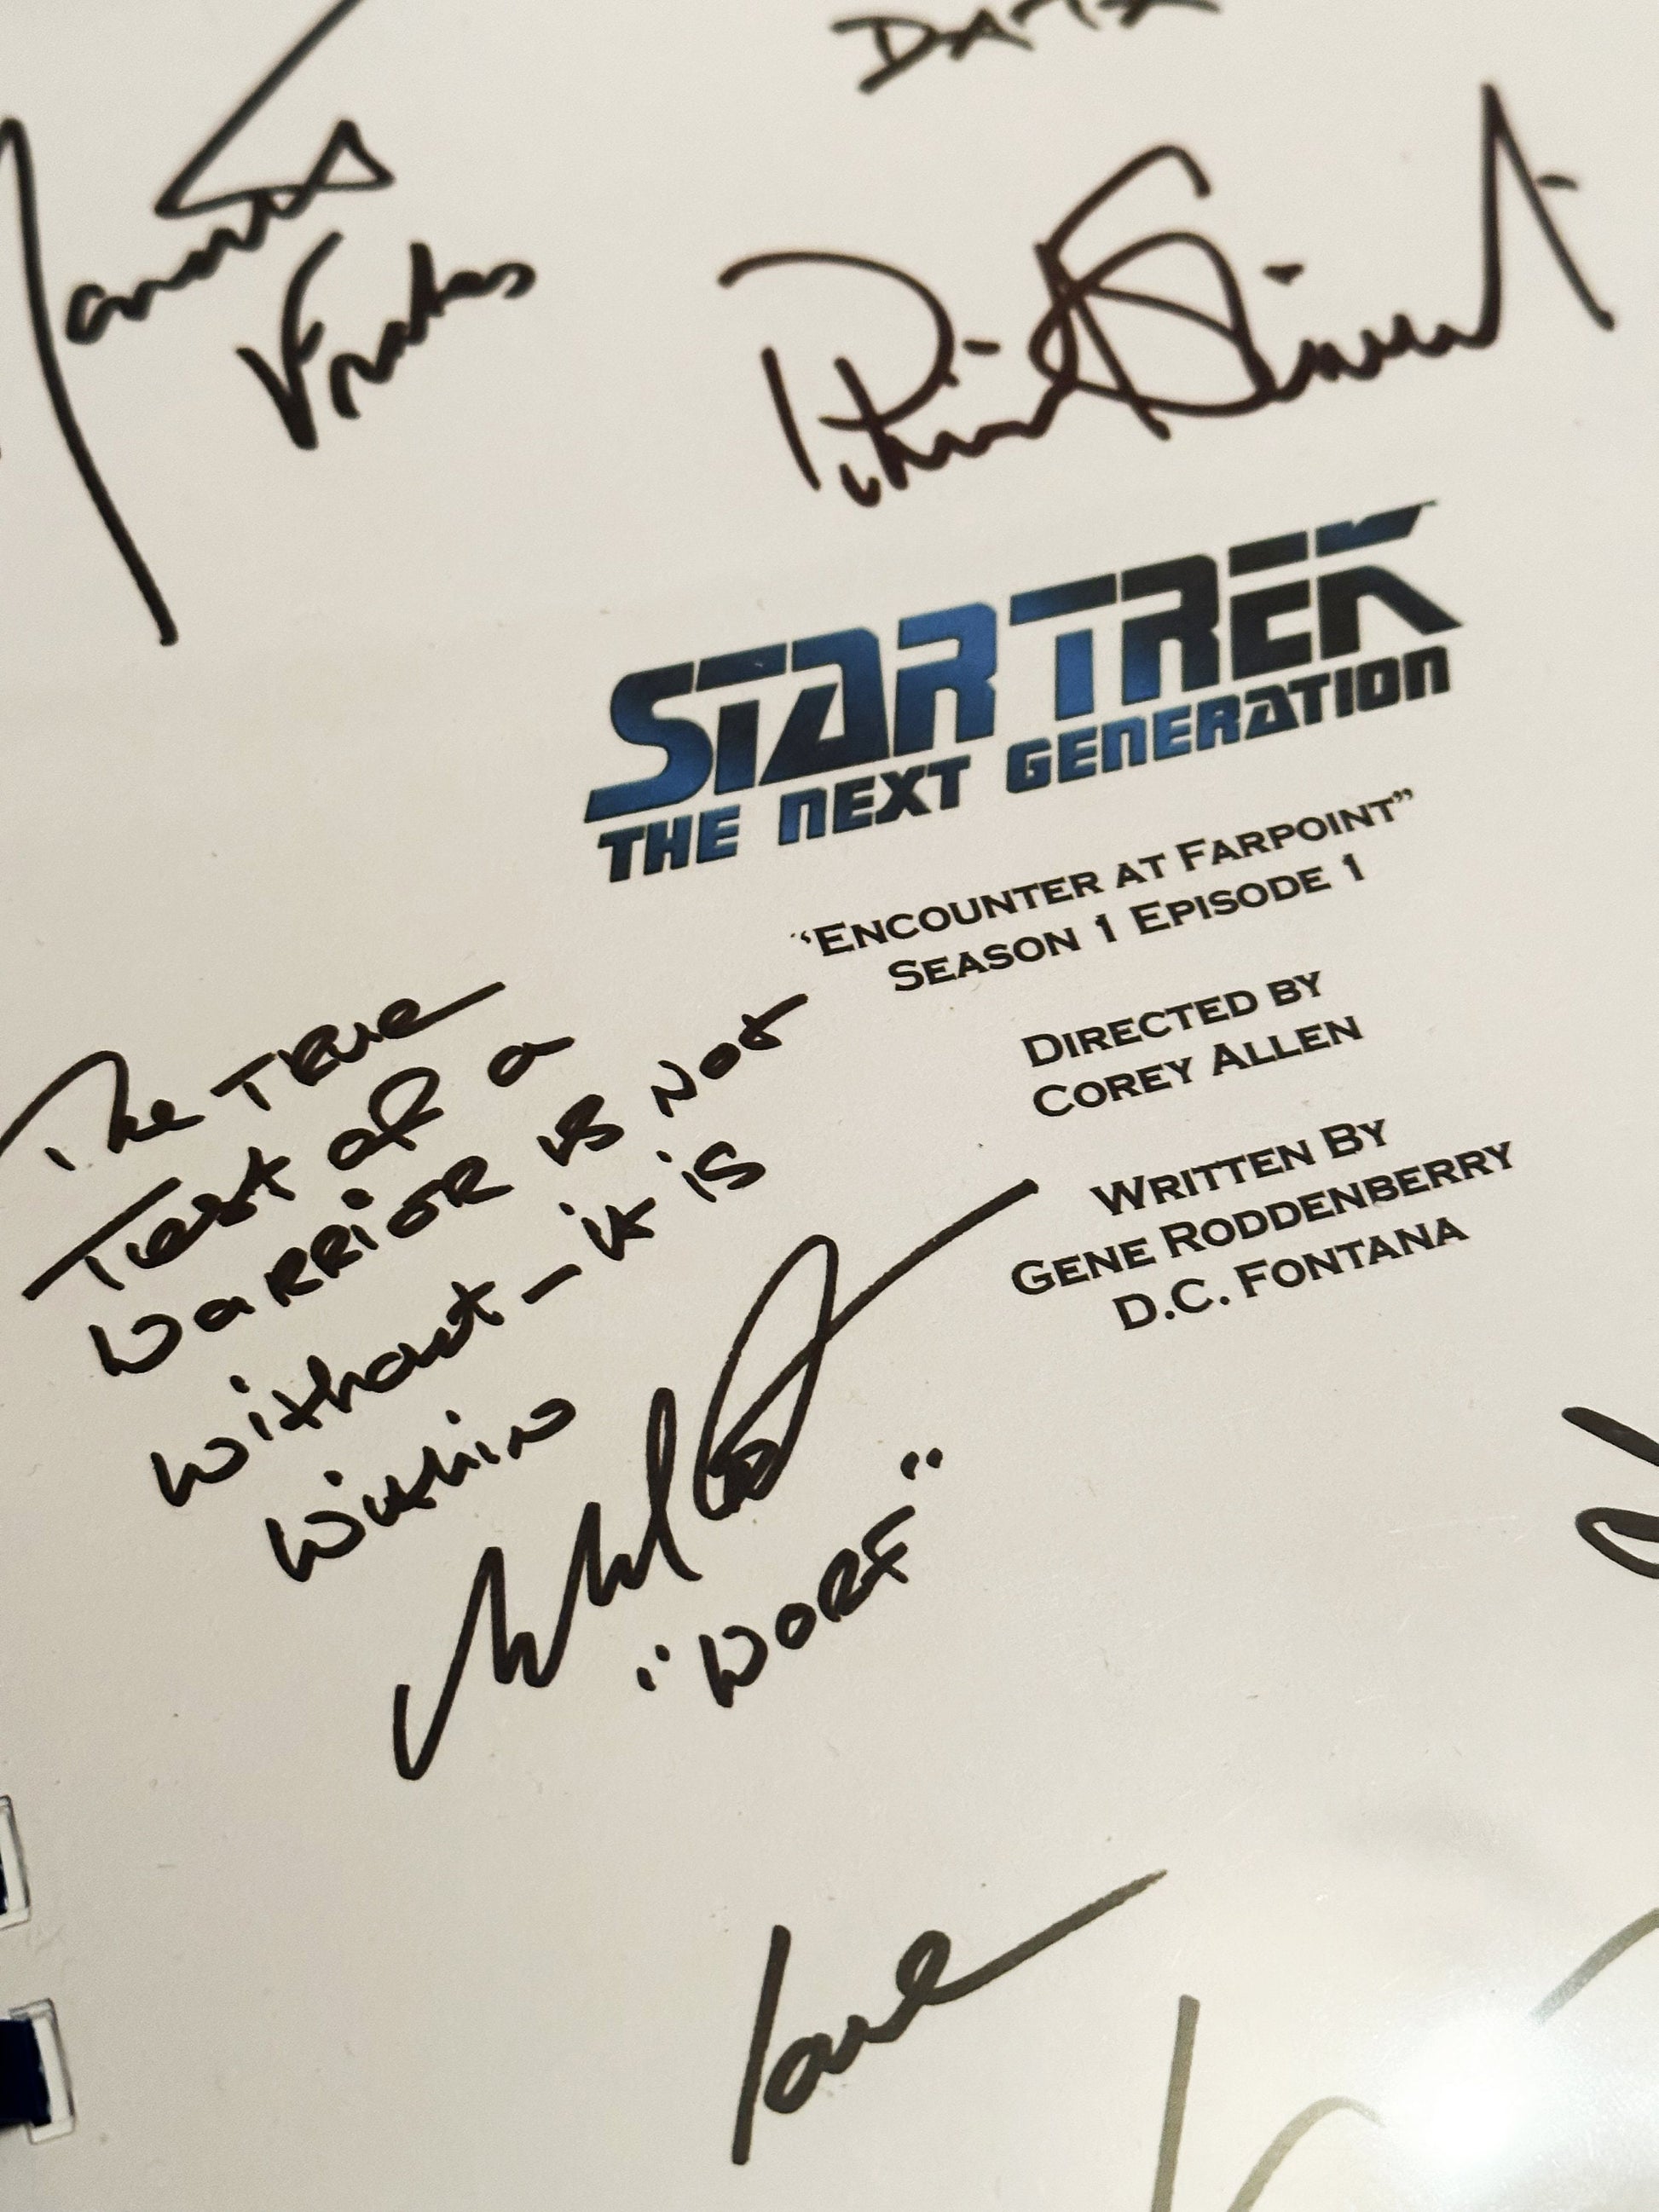 DATA
Jonathan
Frakes
Patrick Stewart
STAR TREK
THE NEXT GENERATION
“ENCOUNTER AT FARPOINT”
SEASON 1 EPISODE 1
DIRECTED BY
COREY ALLEN
WRITTEN BY
GENE RODDENBERRY
D.C. FONTANA
The TRUE
Test of a
WARRIOR is Not
without – it is
within
"WORF"